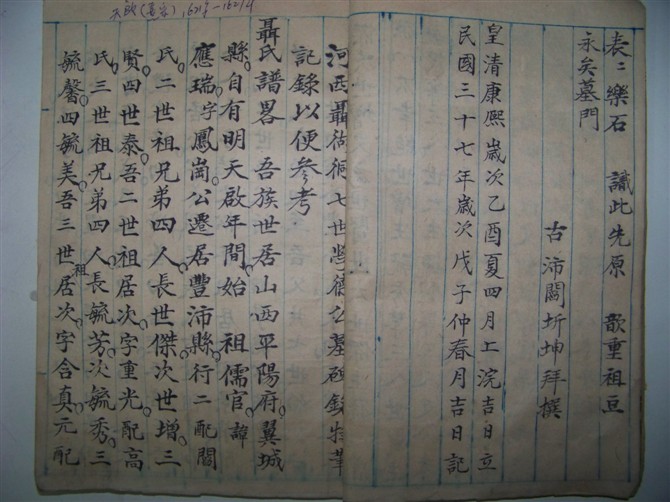 表〻樂石 識此先原 歆重祖豆
永矣墓門
古沛關圻坤拜撰
皇清康熙歲次乙酉夏四月上浣吉日立
民國三十七年歲次戊子仲春月吉日記
河西聶衕衕七世塋德公墓碑錄特筆
記錄以便參考
聶氏譜畧 吾族世居山西平陽府翼城
縣自有明天啟年間始 祖儒官諱
應瑞字鳳崗公遷居豐沛縣行二配閻
氏二世祖兄弟四人長世傑次世增三
賢四世泰吾二世祖居次字重光配高
氏三世祖兄弟四人長毓芳次毓秀三
毓馨四毓美吾三世祖居次字含真元配
天啟 1621年—1627年